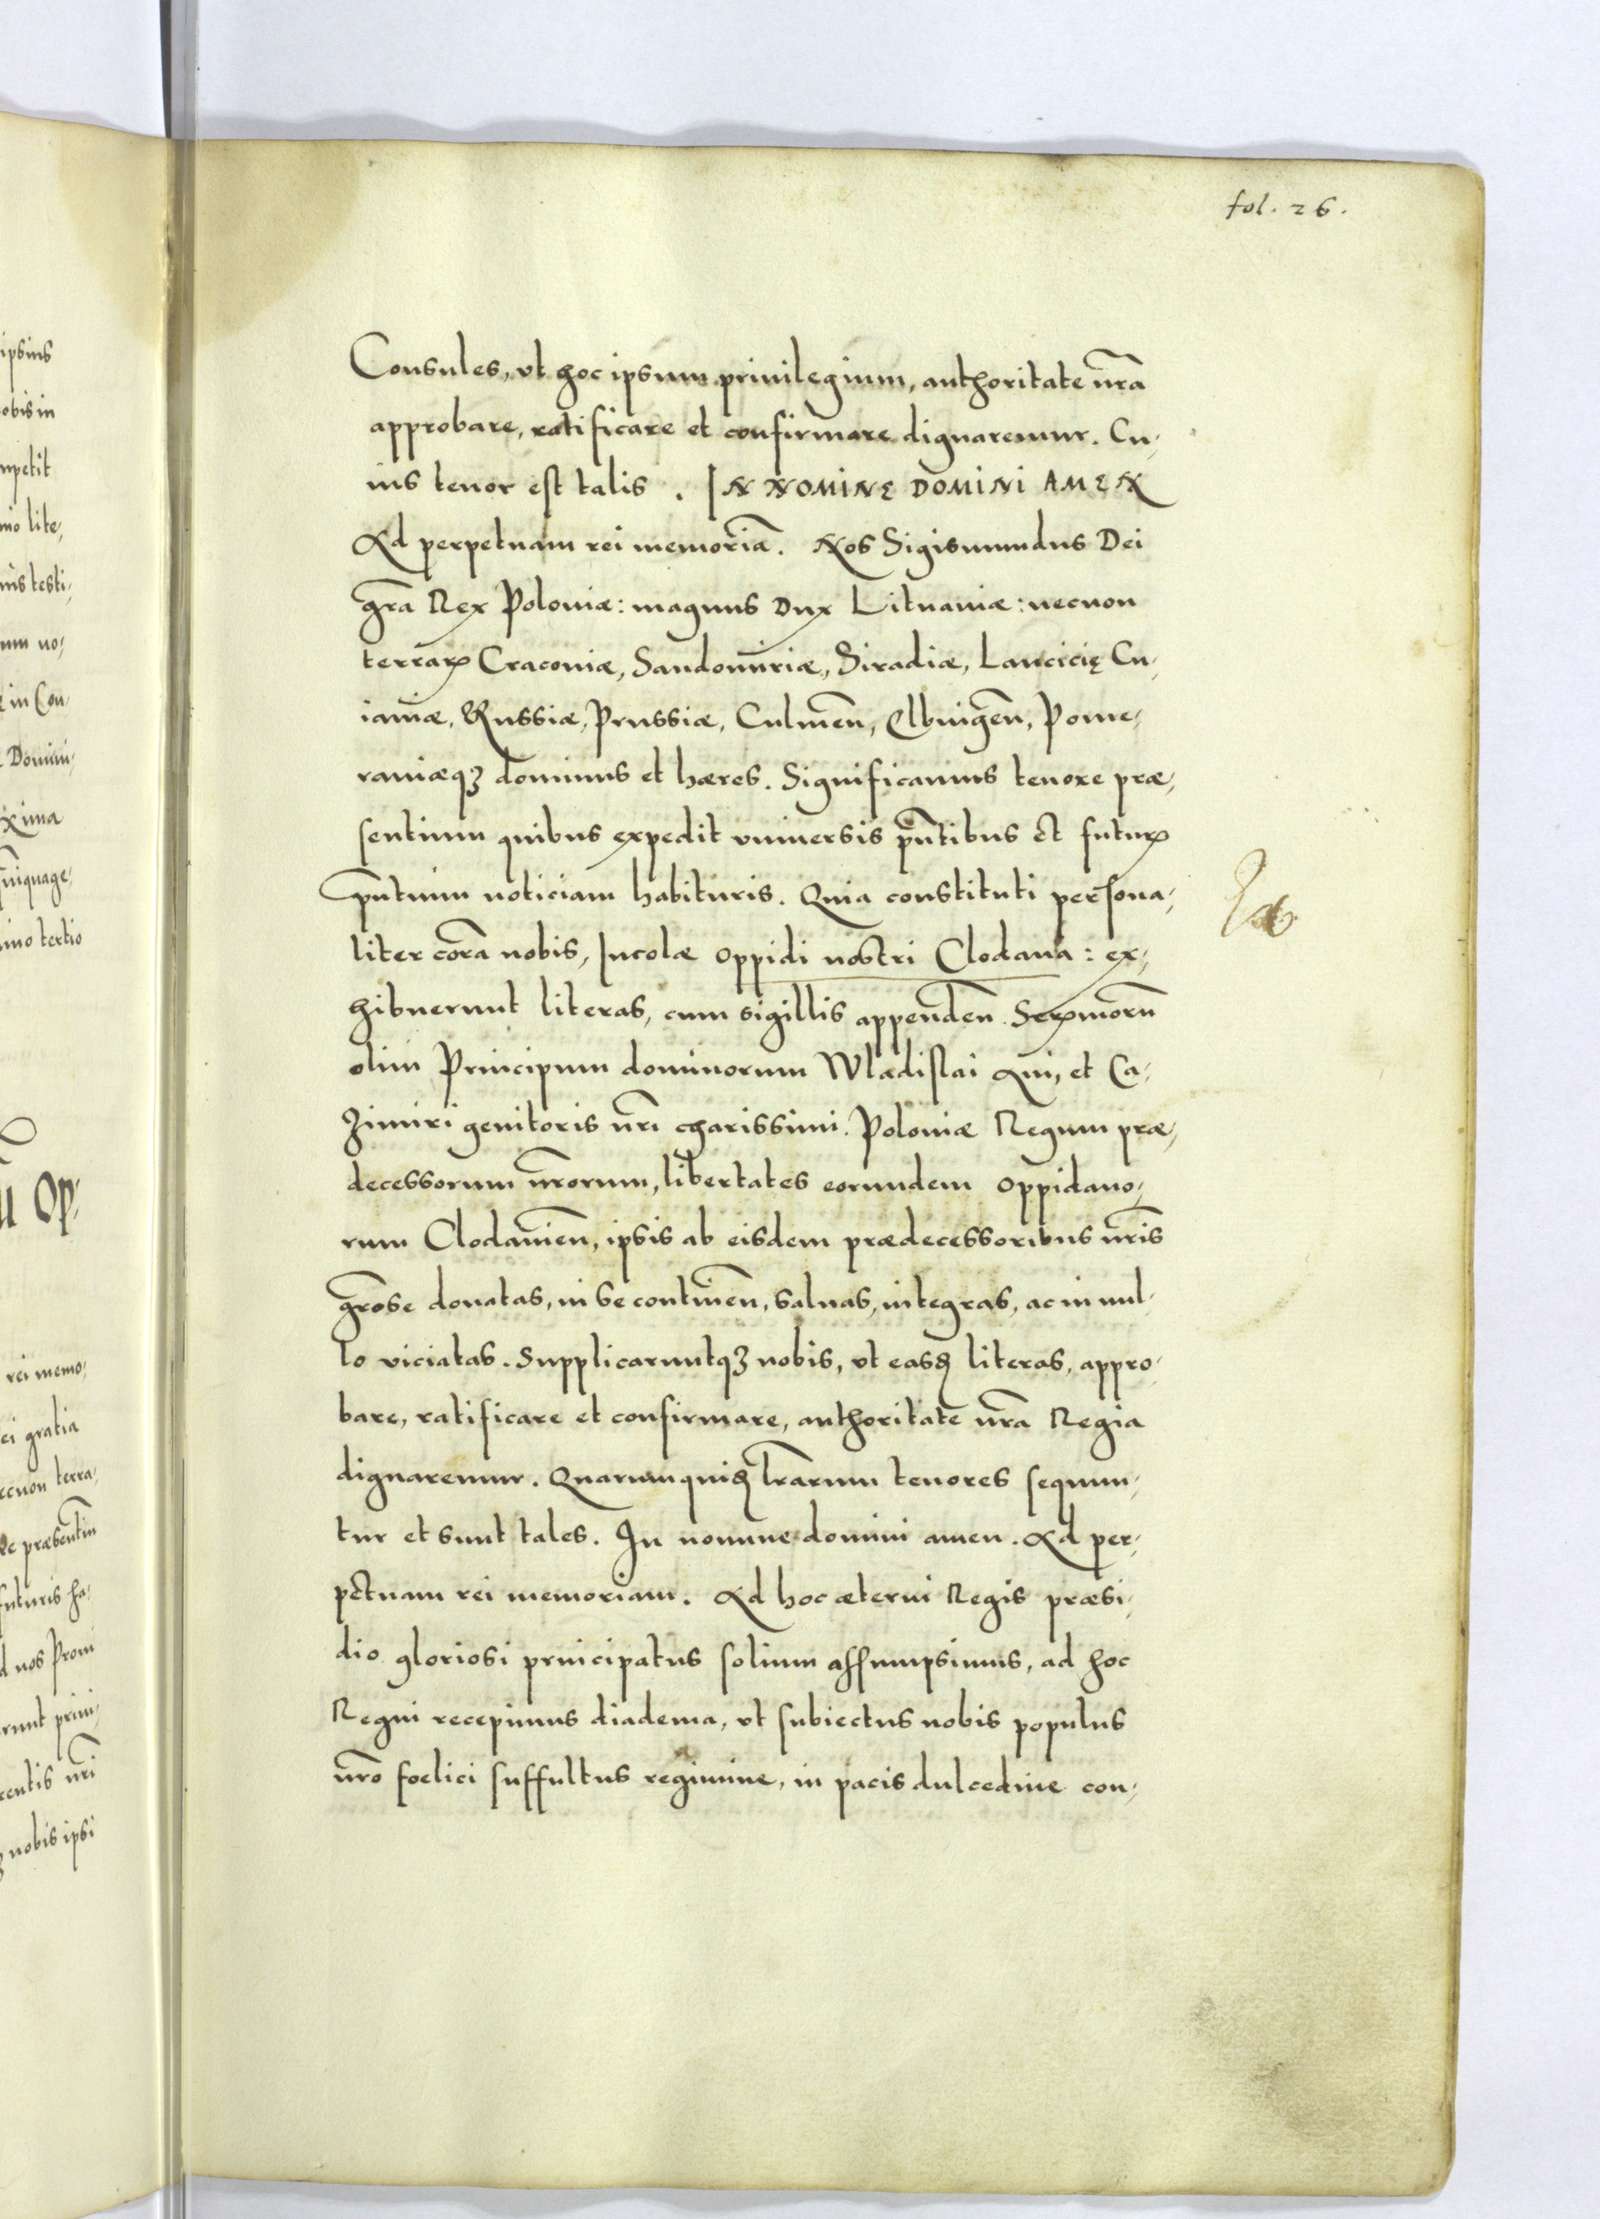 fol. 26.
Consules, vt hoc ipsum priuilegium, authoritate nr̃a
approbare, ratificare et confirmare dignaremur. Cu,
ius tenor est talis. IN NOMINE DOMINI AMEN
Ad perpetuam rei memoriã. Nos Sigismundus Dei
gr̃a Rex Poloniæ: magnus Dux Lituaniæ: necnon
terrarꝝ Cracouiæ, Sandomiriæ, Siradiæ, Lancicię Cu,
iauiæ, Russiæ, Prussiæ, Culmeñ, Elbingeñ, Pome,
raniæqꝫ dominus et hæres. Significamus tenore præ,
sentium quibus expedit vniuersis pñtibus et futurꝝ
pñtium noticiam habituris. Quia constituti persona,
liter corã nobis, Incolæ oppidi nostri Clodaua: ex,
hibuerunt literas, cum sigillis appendeñ Serꝫmorũ
olim Principum dominorum Wladislai Aui, et Ca,
zimiri genitoris nr̃i charissimi. Poloniæ Regum præ,
decessorum nr̃orum, libertates eorundem oppidano,
rum Clodauieñ, ipsis ab eisdem prædecessoribus nr̃is
gr̃ose donatas, in se contineñ, saluas, integras, ac in nul,
lo viciatas. Supplicaruntqꝫ nobis, vt easđ literas, appro,
bare, ratificare et confirmare, authoritate nr̃a Regia
dignaremur. Quarumquiđ lr̃arum tenores sequun,
tur et sunt tales. In nomine domini amen. Ad per,
petuam rei memoriam. Ad hoc æterni Regis præsi,
dio gloriosi principatus solium assumpsimus, ad hoc
Regni recepimus diadema, vt subiectus nobis populus
nr̃o foelici suffultus regimine, in pacis dulcedine con,